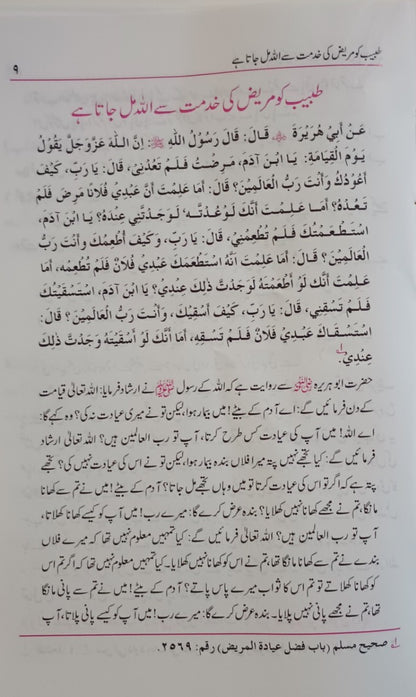 طبیب کو مریض کی خدمت سے اللہ مل جاتا ہے ۹
طبیب کو مریض کی خدمت سے اللہ مل جاتا ہے
عَنْ أَبِي هُرَيْرَةَ ﷺ قَالَ: قَالَ رَسُوْلُ اللهِ ﷺ: إِنَّ اللهَ عَزَّوَجَلَّ يَقُوْلُ
يَوْمَ الْقِيَامَةِ: يَا ابْنَ آدَمَ، مَرِضْتُ فَلَمْ تَعُدْنِيْ، قَالَ: يَا رَبِّ، كَيْفَ
أَعُوْدُكَ وَأَنْتَ رَبُّ الْعَالَمِيْنَ؟ قَالَ: أَمَا عَلِمْتَ أَنَّ عَبْدِيْ فُلَانًا مَرِضَ فَلَمْ
تَعُدْهُ؟ أَمَا عَلِمْتَ أَنَّكَ لَوْ عُدْتَهُ، لَوَجَدْتَنِيْ عِنْدَهُ؟ يَا ابْنَ آدَمَ،
اسْتَطْعَمْتُكَ فَلَمْ تُطْعِمْنِيْ، قَالَ: يَا رَبِّ، وَكَيْفَ أُطْعِمُكَ وَأَنْتَ رَبُّ
الْعَالَمِيْنَ؟ قَالَ: أَمَا عَلِمْتَ أَنَّهُ اسْتَطْعَمَكَ عَبْدِيْ فُلَانٌ فَلَمْ تُطْعِمْهُ، أَمَا
عَلِمْتَ أَنَّكَ لَوْ أَطْعَمْتَهُ لَوَجَدْتَ ذٰلِكَ عِنْدِيْ؟ يَا ابْنَ آدَمَ، اسْتَسْقَيْتُكَ
فَلَمْ تَسْقِنِيْ، قَالَ: يَا رَبِّ، كَيْفَ أَسْقِيْكَ، وَأَنْتَ رَبُّ الْعَالَمِيْنَ؟ قَالَ:
اسْتَسْقَاكَ عَبْدِيْ فُلَانٌ فَلَمْ تَسْقِهِ، أَمَا أَنَّكَ لَوْ أَسْقَيْتَهُ وَجَدْتَ ذٰلِكَ
عِنْدِيْ.
حضرت ابوہریرہ رضی اللہ عنہ سے روایت ہے کہ اللہ کے رسول ﷺ نے ارشاد فرمایا: اللہ تعالیٰ قیامت
کے دن فرمائیں گے: اے آدم کے بیٹے! میں بیمار ہوا، لیکن تو نے میری عیادت نہ کی؟ وہ کہے گا:
اے اللہ! میں آپ کی عیادت کس طرح کرتا، آپ تو رب العالمین ہیں؟ اللہ تعالیٰ ارشاد
فرمائیں گے: کیا تجھے نہیں پتہ میرا فلاں بندہ بیمار ہوا، لیکن تو نے اس کی عیادت نہیں کی؟ تجھے
پتہ ہے کہ اگر تو اس کی عیادت کرتا تو میں وہاں تجھے مل جاتا؟ آدم کے بیٹے! میں نے تم سے کھانا
مانگا، تم نے مجھے کھانا نہیں کھلایا؟ بندہ عرض کرے گا: میرے رب! میں آپ کو کیسے کھانا کھلاتا،
آپ تو رب العالمین ہیں؟ اللہ تعالیٰ فرمائیں گے: کیا تمہیں معلوم نہیں تھا کہ میرے فلاں
بندے نے تم سے کھانا مانگا تھا، تم نے اس کو کھانا نہیں کھلایا۔ کیا تمہیں معلوم نہیں تھا کہ اگر تم اس
کو کھانا کھلاتے تو تم اس کا ثواب میرے پاس پاتے؟ آدم کے بیٹے! میں نے تم سے پانی مانگا
تھا، تم نے مجھے پانی نہیں پلایا۔ بندہ عرض کرے گا: میرے رب! میں آپ کو کیسے پانی پلاتا، آپ
لے صحیح مسلم (باب فضل عيادة المريض) رقم: ٢٥٦٩.